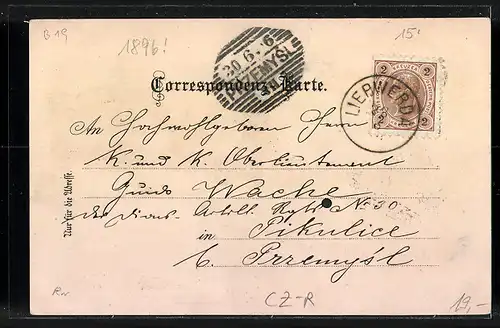 B 19
1896!
15!
30.6.96
PRZEMYŚL
Correspondenz-Karte.
2 2
LIEBWERDA
An Hochwohlgeboren Herrn
K. und K. Oberlieutenant
Guido Wache
des Divis. Artill. Rgts No 30
in Pikulice
b. Przemyśl
Nur für die Adresse.
CZ-R
19,-